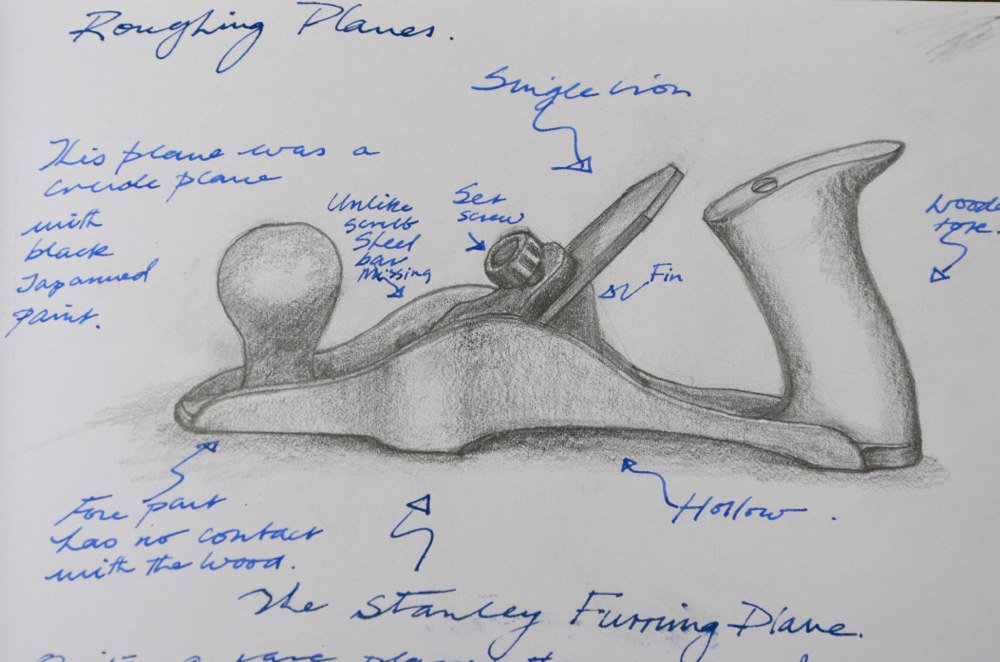 Roughing Planes.
Single iron
This plane was a
crude plane
with
black
Japanned
paint.
Unlike
scrub
Steel
bar
Missing
Set
screw
Fin
Wooden
tote.
Fore part
has no contact
with the wood.
Hollow.
The Stanley Furring Plane.
Quite a rare plane